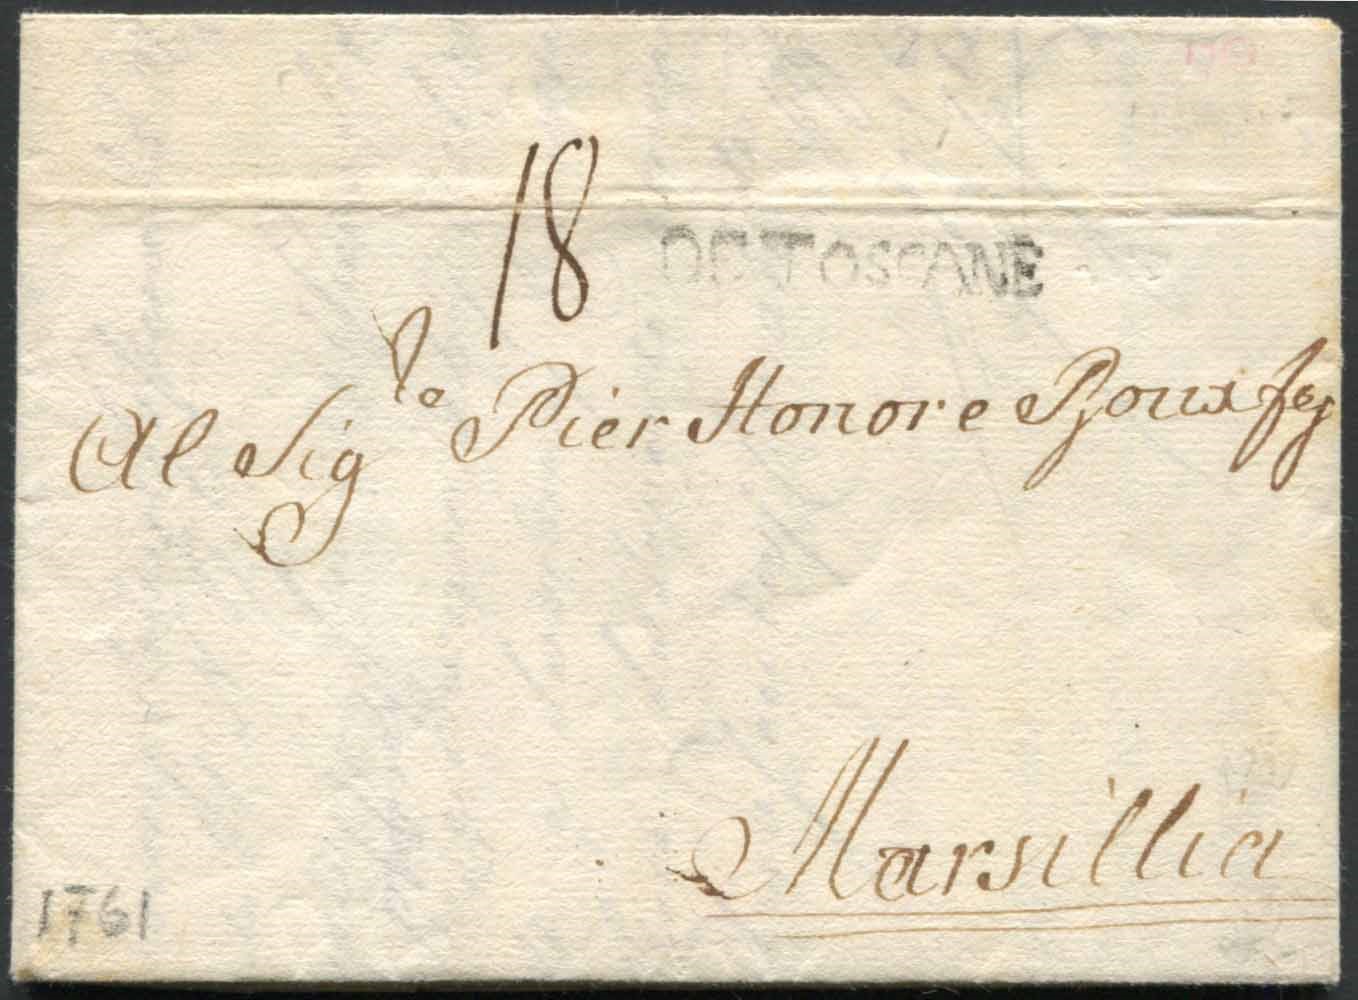 18
DE TOSCANE
Al Sig.re Pier Honore Roux
Marsillia
1761